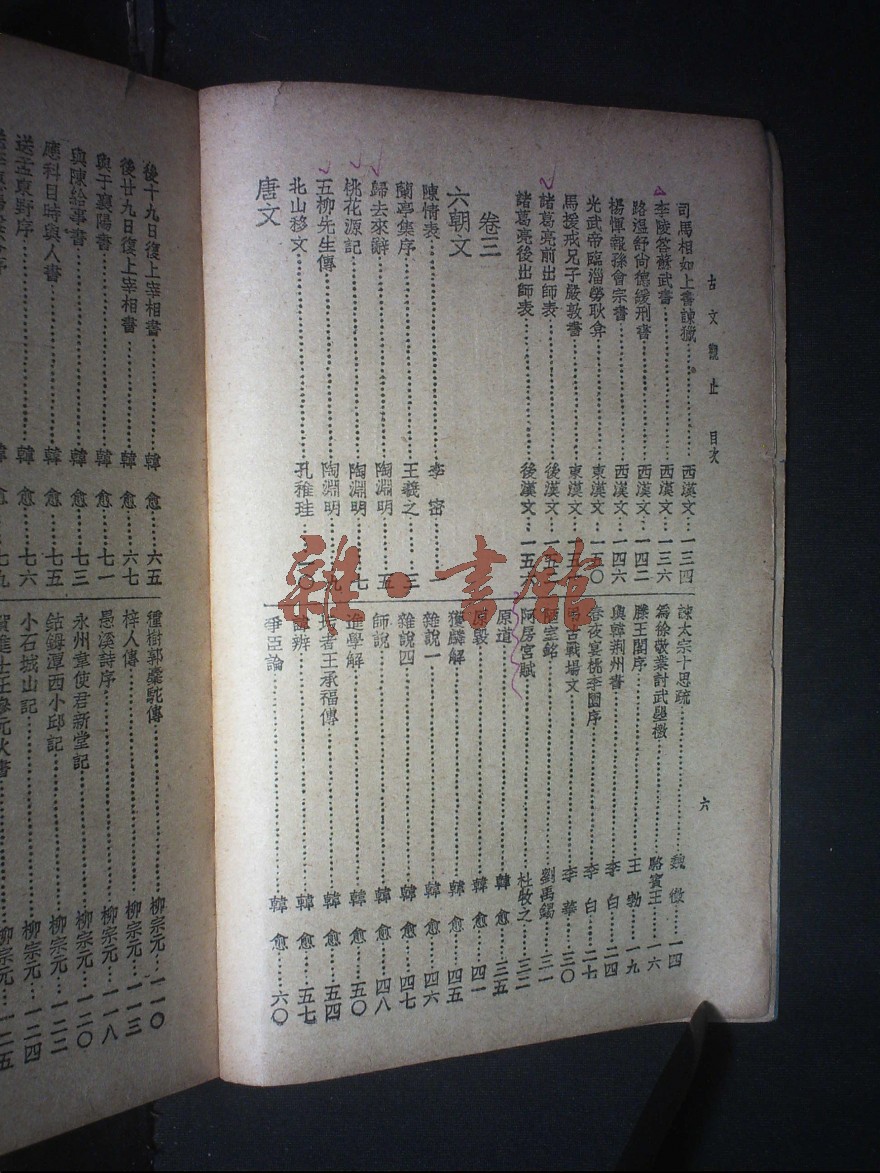 古文觀止 目次
六
司馬相如上書諫獵 西漢文 一三四
李陵答蘇武書 西漢文 一三六
路溫舒尚德緩刑書 西漢文 一四二
楊惲報孫會宗書 西漢文 一四六
光武帝臨淄勞耿弇 東漢文 一五〇
馬援戒兄子嚴敦書 東漢文 一五
諸葛亮前出師表 後漢文 一五二
諸葛亮後出師表 後漢文 一五六
卷三
六朝文
陳情表 李密 一
蘭亭集序 王羲之 三
歸去來辭 陶淵明 五
桃花源記 陶淵明 七
五柳先生傳 陶淵明 九
北山移文 孔稚珪 一〇
唐文
諫太宗十思疏 魏徵 一四
為徐敬業討武曌檄 駱賓王 一六
滕王閣序 王勃 一九
與韓荊州書 李白 二四
春夜宴桃李園序 李白 二七
弔古戰場文 李華 三〇
陋室銘 劉禹錫 三一
阿房宮賦 杜牧之 三二
原道 韓愈 三五
原毀 韓愈 四一
獲麟解 韓愈 四五
雜說一 韓愈 四六
雜說四 韓愈 四七
師說 韓愈 四八
進學解 韓愈 五〇
圬者王承福傳 韓愈 五四
諱辨 韓愈 五七
爭臣論 韓愈 六〇
後十九日復上宰相書 韓愈 六五
後廿九日復上宰相書 韓愈 六七
與于襄陽書 韓愈 七一
與陳給事書 韓愈 七三
應科目時與人書 韓愈 七五
送孟東野序 韓愈 七六
七九
種樹郭橐駝傳 柳宗元 一一〇
梓人傳 柳宗元 一一三
愚溪詩序 柳宗元 一一八
永州韋使君新堂記 柳宗元 一二〇
鈷鉧潭西小邱記 柳宗元 一二二
小石城山記 柳宗元 一二四
賀進士王參元失火書 柳宗元 一二五
雜·書館